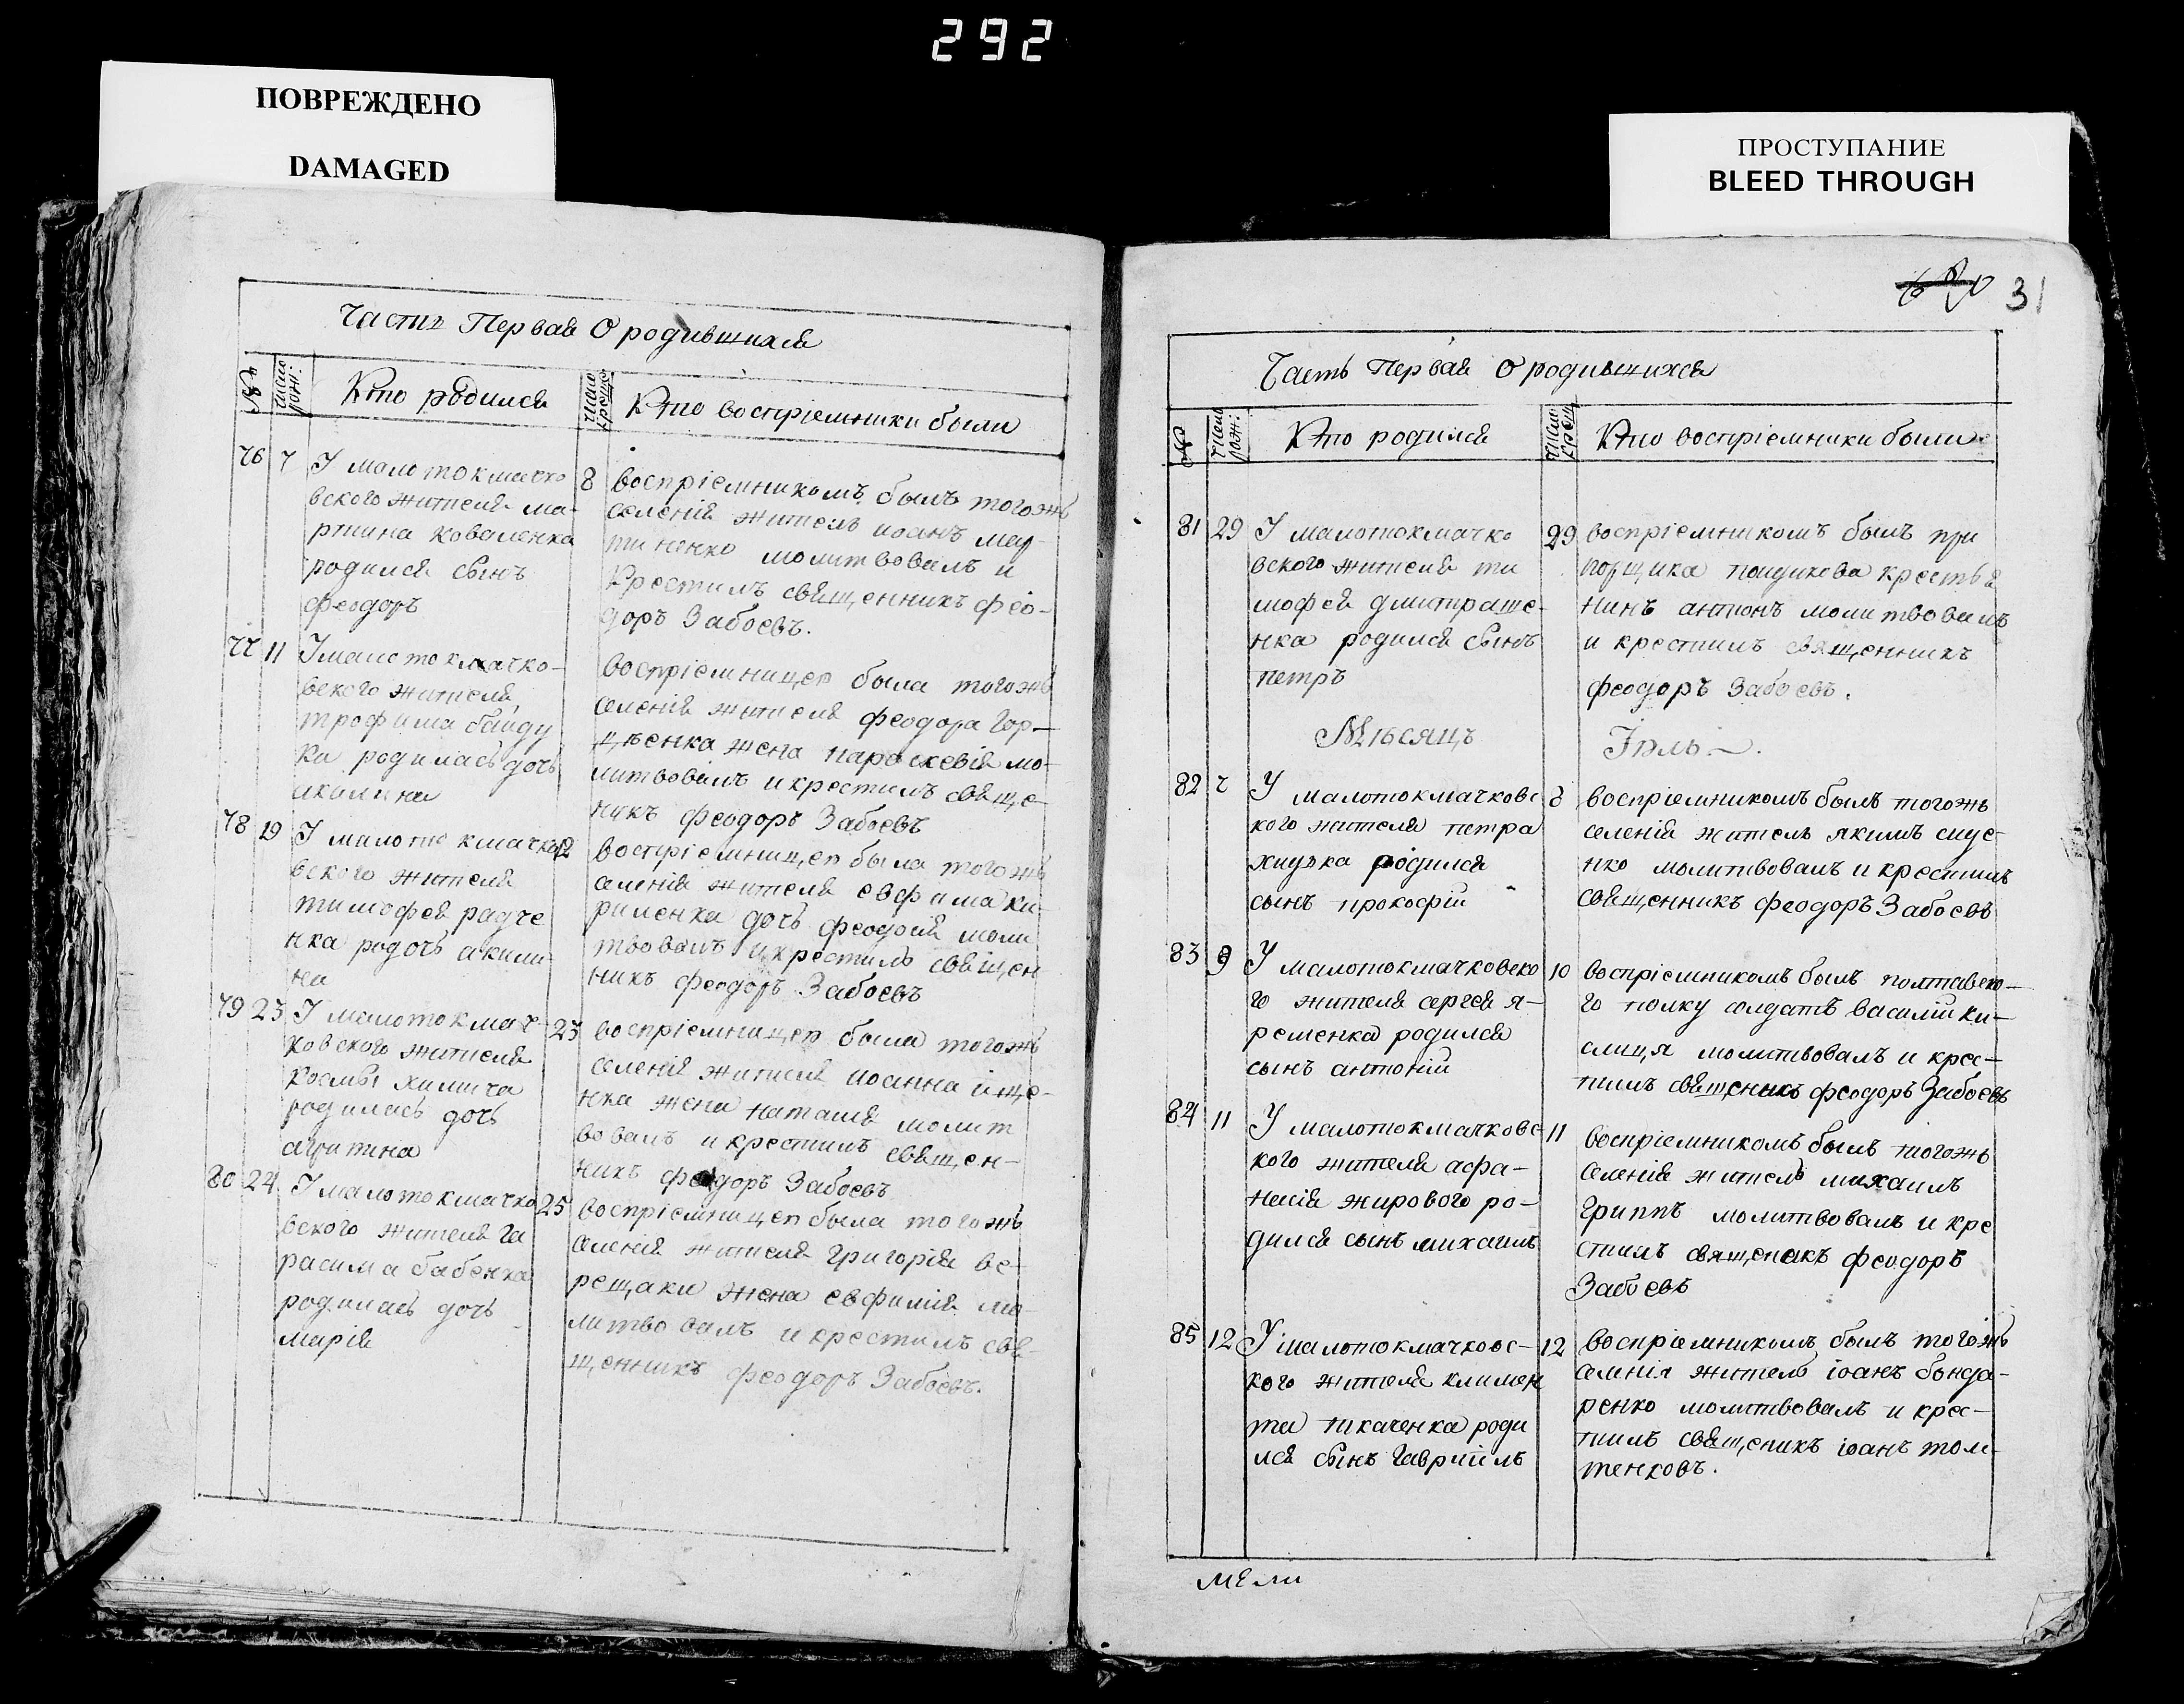 292
ПОВРЕЖДЕНО
DAMAGED
ПРОСТУПАНИЕ
BLEED THROUGH
Часть Первая О родившихся
№
число рож:
Кто родился
число крещ
Кто воспріемники были
76 7
У малотокмачко
вского жителя ма-
ртина коваленка
родился сынъ
феодоръ
8
воспріемникомъ былъ тогожъ
селенія житель иоанъ мар-
тиненко молитвовалъ и
крестилъ священникъ фео-
доръ Забоевъ.
77 11
У малотокмачко-
вского жителя
трофима байду
ки родилась дочь
акилина
воспріемницею была тогожъ
селенія жителя феодора гор-
женка жена параскевія мо-
литвовалъ и крестилъ свяще-
никъ феодоръ Забоевъ
78 19
У малотокмачко
вского жителя
тимофея радче
нка род дочь акили-
на
воспріемницею была тогожъ
селенія жителя евфима ки-
риленка дочь феодосія моли
твовалъ и крестилъ священ
никъ феодоръ Забоевъ
79 23
У малотокмач-
ковского жителя
космы
родилась дочь
агритина
23
воспріемницею была тогожъ
селенія жителя иоанна ище-
нка жена наталія молит
вовалъ и крестилъ священ-
никъ феодоръ Забоевъ
80 24
У малотокмачко
вского жителя га
расима бабенка
родилась дочь
марія
25
воспріемницею была тогожъ
селенія жителя григорія ве-
рещаки жена евфимія мо-
литвовалъ и крестилъ свя-
щенникъ феодоръ Забоевъ.
31
Часть Первая О родившихся
№
число рож:
Кто родился
число крещ
Кто воспріемники были
81 29
У малотокмачко
вского жителя ти
мофея дмитраше-
нка родился сынъ
петръ
29
воспріемникомъ былъ пра
порщика крестья
нинъ антонъ молитвовалъ
и крестилъ священникъ
феодоръ Забоевъ.
Мѣсяцъ Іюль.
82 7
У малотокмачковс
кого жителя петра
родился
сынъ прокофій
8
воспріемникомъ былъ тогожъ
селенія житель якимъ
нко молитвовалъ и крестилъ
священникъ феодоръ Забоевъ
83 9
У малотокмачковско
го жителя сергея я-
ременка родился
сынъ антоній
10
воспріемникомъ былъ полтавско-
го полку солдатъ василій ки-
слиця молитвовалъ и крес-
тилъ священикъ феодоръ Забоевъ
84 11
У малотокмачковс
кого жителя афа-
насія жирового ро-
дился сынъ михаилъ
11
воспріемникомъ былъ тогожъ
селенія житель михаилъ
гриппъ молитвовалъ и кре
стилъ священикъ феодоръ
Забоевъ
85 12
У малотокмачковс-
кого жителя климен
та ткаченка роди
лся сынъ гавріилъ
12
воспріемникомъ былъ тогожъ
селнія житель іоанъ бонда-
ренко молитвовалъ и крес-
тилъ священикъ іоанъ тол-
тенковъ.